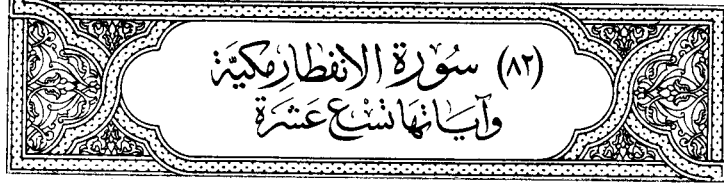 (٨٢) سُوْرَة الانفطار مكيَّة
وآياتها تسع عشرة